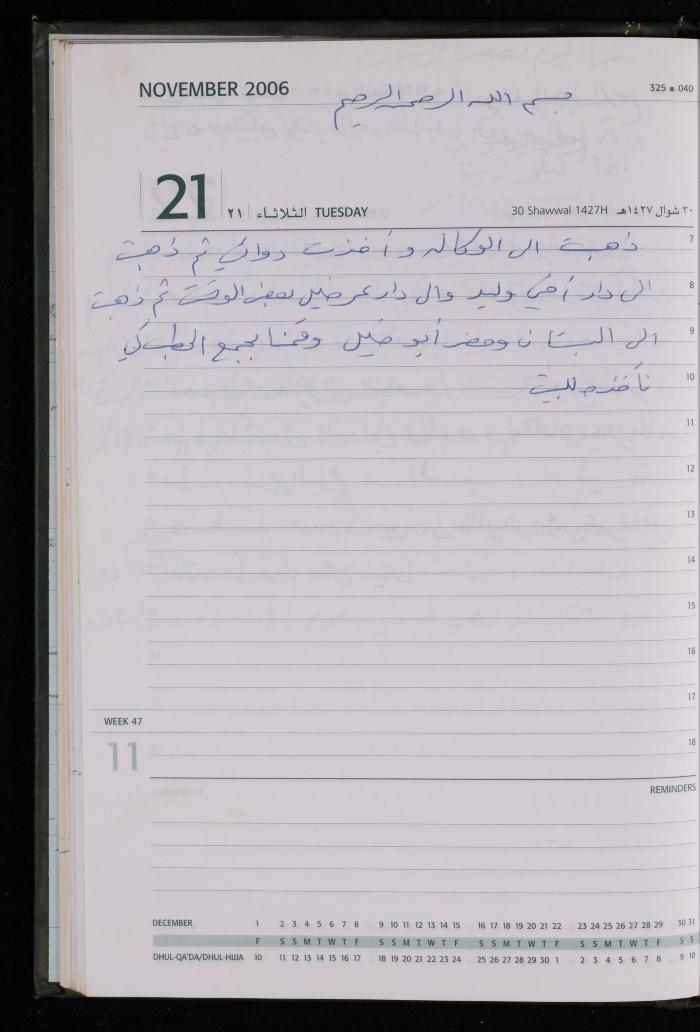 NOVEMBER 2006
بسم الله الرحمن الرحيم
325 ■ 040
21 ٢١ الثلاثاء TUESDAY
30 Shawwal 1427H ٣٠ شوال ١٤٢٧هـ
7
ذهبت الى الوكاله وأخذت دوائي ثم ذهبت
8
الى دار أخي وليد والى دار عمر خليل بعض الوقت ثم ذهبت
9
الى البستان وحضر أبو خليل وقمنا بجمع الحطب كي
10
نأخذه للبيت
11
12
13
14
15
16
17
WEEK 47
11
18
REMINDERS
DECEMBER 1 2 3 4 5 6 7 8 9 10 11 12 13 14 15 16 17 18 19 20 21 22 23 24 25 26 27 28 29 30 31
F S S M T W T F S S M T W T F S S M T W T F S S M T W T F S S
DHUL-QA'DA/DHUL-HIJJA 10 11 12 13 14 15 16 17 18 19 20 21 22 23 24 25 26 27 28 29 30 1 2 3 4 5 6 7 8 9 10